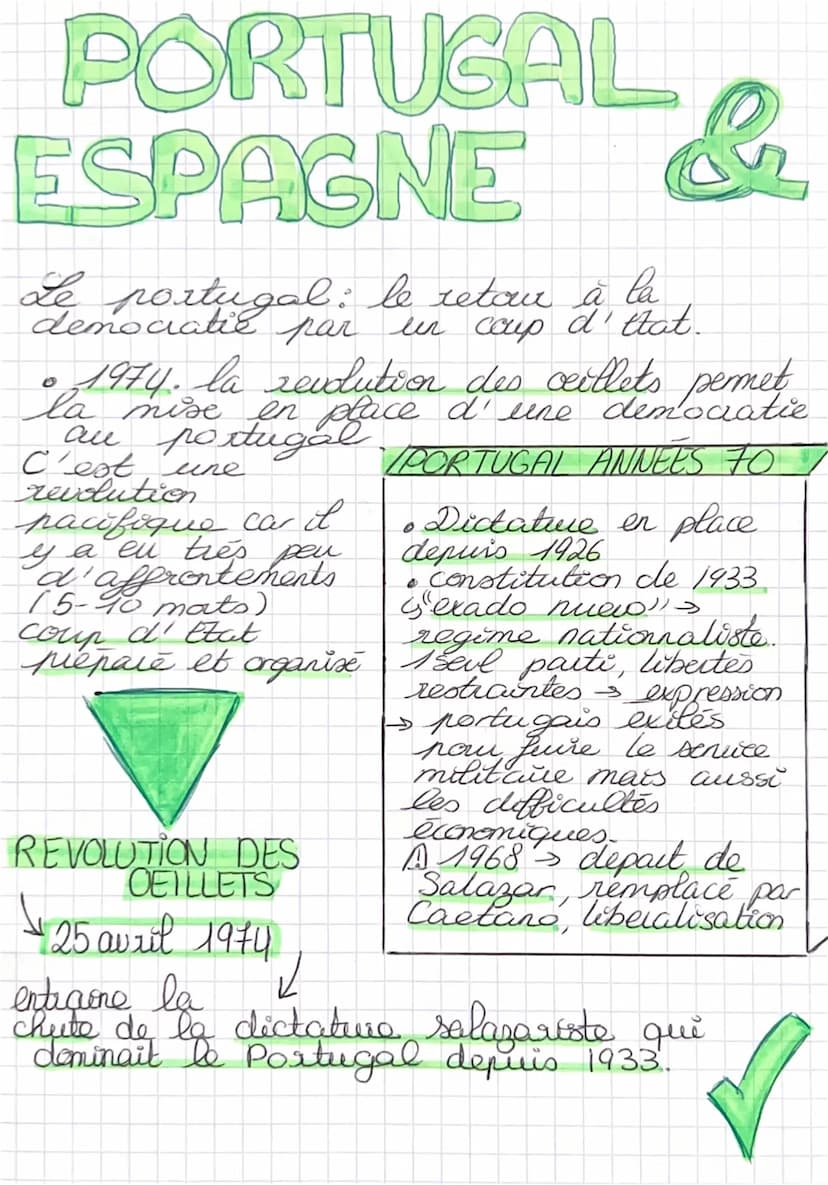 PORTUGAL
&
ESPAGNE
Le portugal : le retour à la
democratie par un coup d'Etat.
• 1974. la revolution des oeillets permet
la mise en place d'une democratie
au portugal
C'est une
revolution
pacifique car il
y a eu très peu
d'affrontements
(5-10 morts)
coup d'Etat
préparé et organisé
REVOLUTION DES
OEILLETS
25 avril 1974
entraine la
chute de la dictature salazariste qui
dominait le Portugal depuis 1933.
PORTUGAL ANNÉES 70
• Dictature en place
depuis 1926
• constitution de 1933
↳ "exado nuevo" →
regime nationnaliste.
1 seul parti, libertés
restraintes → expression
→ portugais exilés
pour fuire le service
militaire mais aussi
les difficultés
économiques.
⚠ 1968 → depart de
Salazar, remplacé par
Caetano, liberalisation